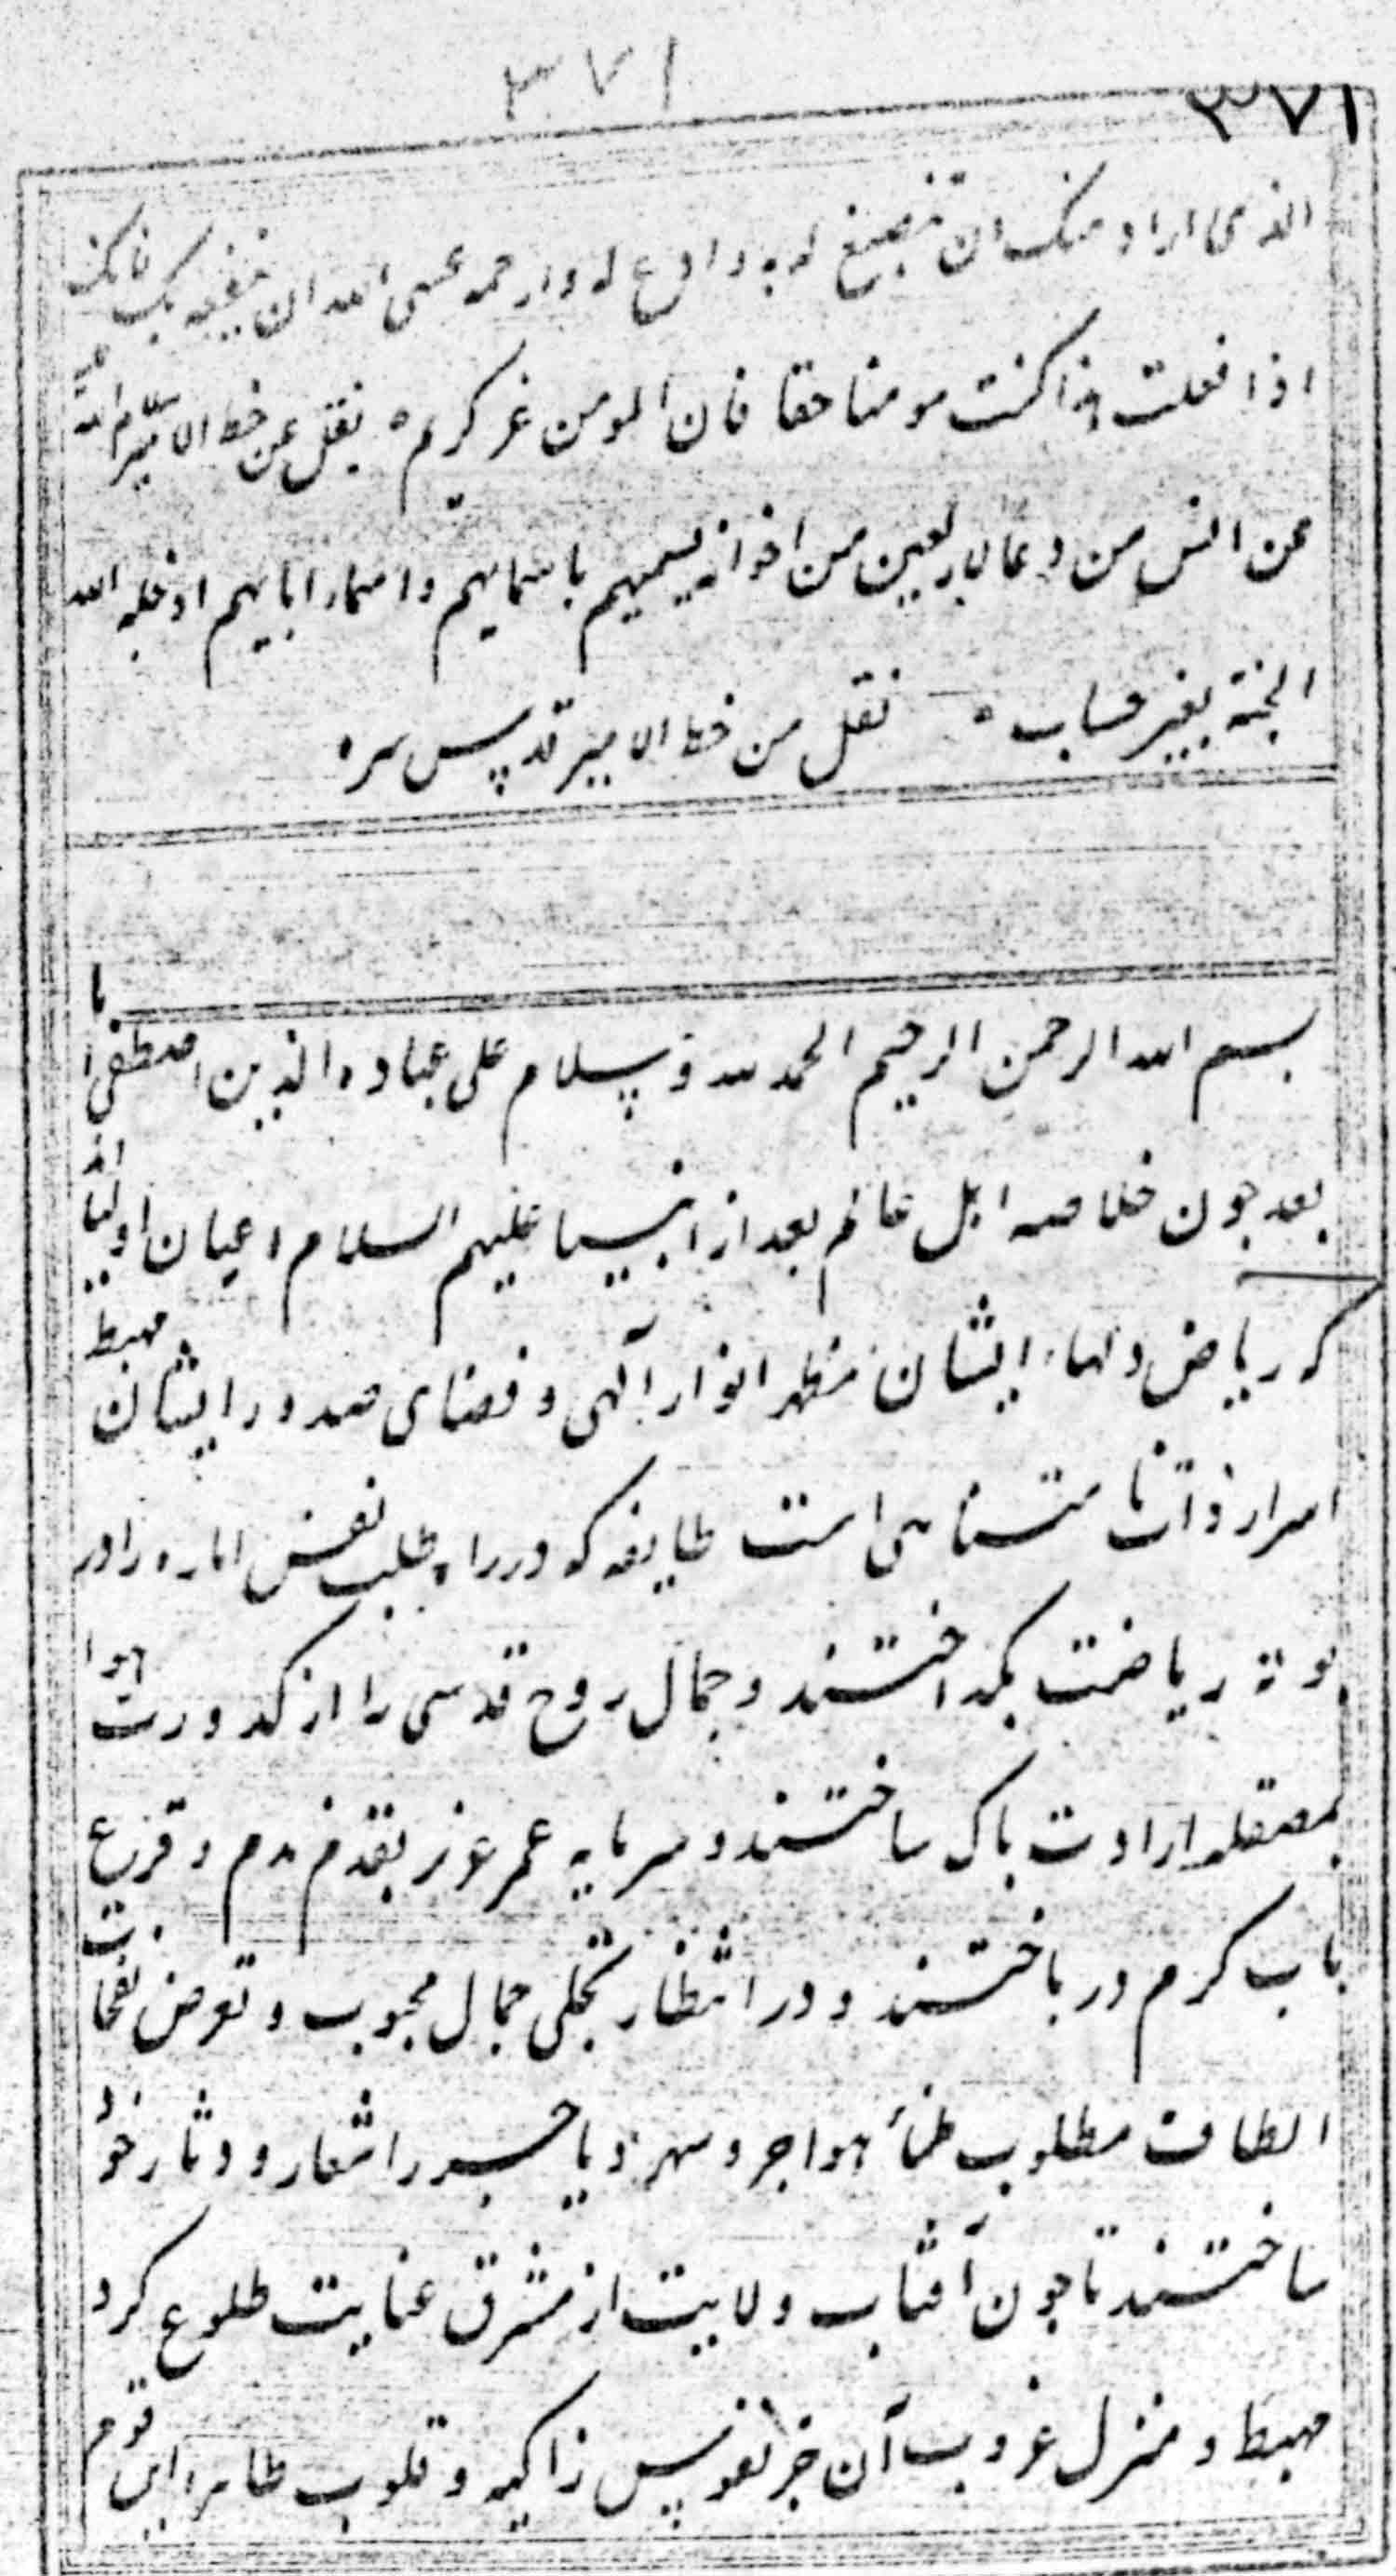 ٣٧١
٣٧١
الذی اراد منک ان تصیغ له به وادع له وارحمه عسی الله ان ینفعه بک فانک
اذا فعلت هذا کنت مومنا حقا فان المومن غر کریم ه نقل عن خط الامیر
عن انس من دعا لاربعین من اخوانه یسمیهم باسمایهم واسماء ابایهم ادخله الله
الجنة بغیر حساب ه نقل من خط الامیر قدس سره
بسم الله الرحمن الرحیم الحمد لله و سلام علی عباده الذین اصطفی اما
بعد چون خلاصه اهل عالم بعد از انبیا علیهم السلام اعیان اولیااند
که ریاض دلهاء ایشان مظهر انوار آلهی و فضای صدور ایشان مهبط
اسرار ذات نا متناهی است طایفه که در راه طلب نفس اماره را در
بوتهٔ ریاضت بکداختند و جمال روح قدسی را از کدورت هوا
بمصقله ارادت باک ساختند و سرمایه عمر عزیز بقدم ندم و قرع
باب کرم در باختند و در انتظار تجلی جمال محبوب و تعرض نفحات
الطاف مطلوب ظمأ هواجر و سهر دیاجر را شعار و دثار خود
ساختند تا چون آفتاب ولایت از مشرق عنایت طلوع کرد
مهبط و منزل غروب آن جز نفوس زاکیه و قلوب طاهره این قوم